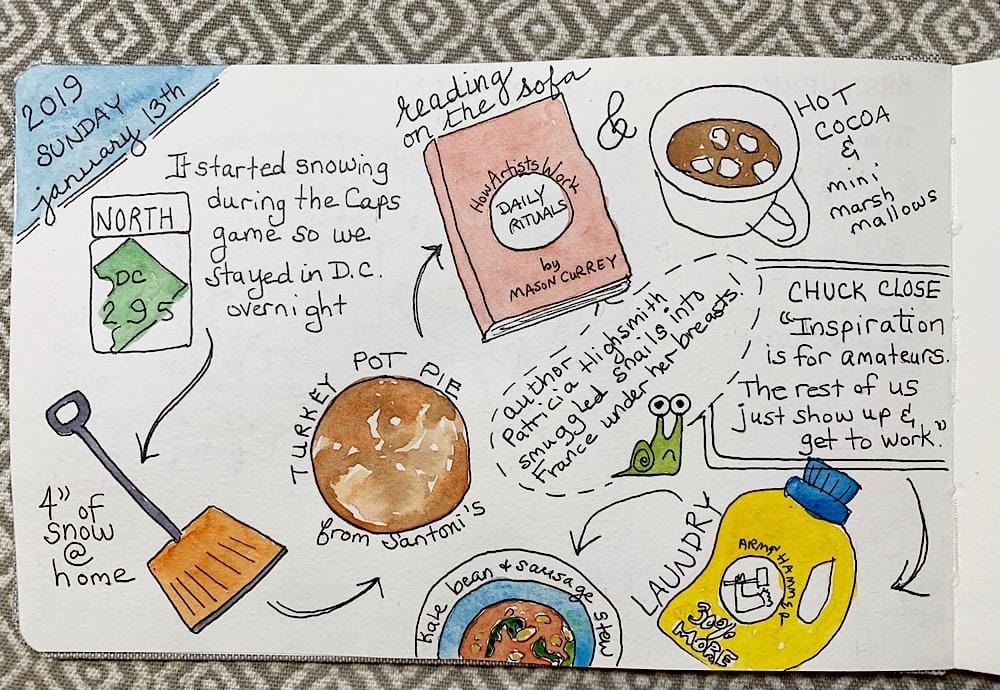 2019
SUNDAY
january 13th
NORTH
DC
295
It started snowing
during the Caps
game so we
stayed in D.C.
overnight
4" of
snow
@
home
TURKEY POT PIE
from Santoni's
reading
on the sofa
How Artists Work
DAILY
RITUALS
by
MASON CURREY
&
HOT
COCOA
&
mini
marsh
mallows
author
Patricia Highsmith
smuggled snails into
France under her breasts!
CHUCK CLOSE
"Inspiration
is for amateurs.
The rest of us
just show up &
get to work."
LAUNDRY
ARM & HAMMER
30%
MORE
Kale bean & sausage stew